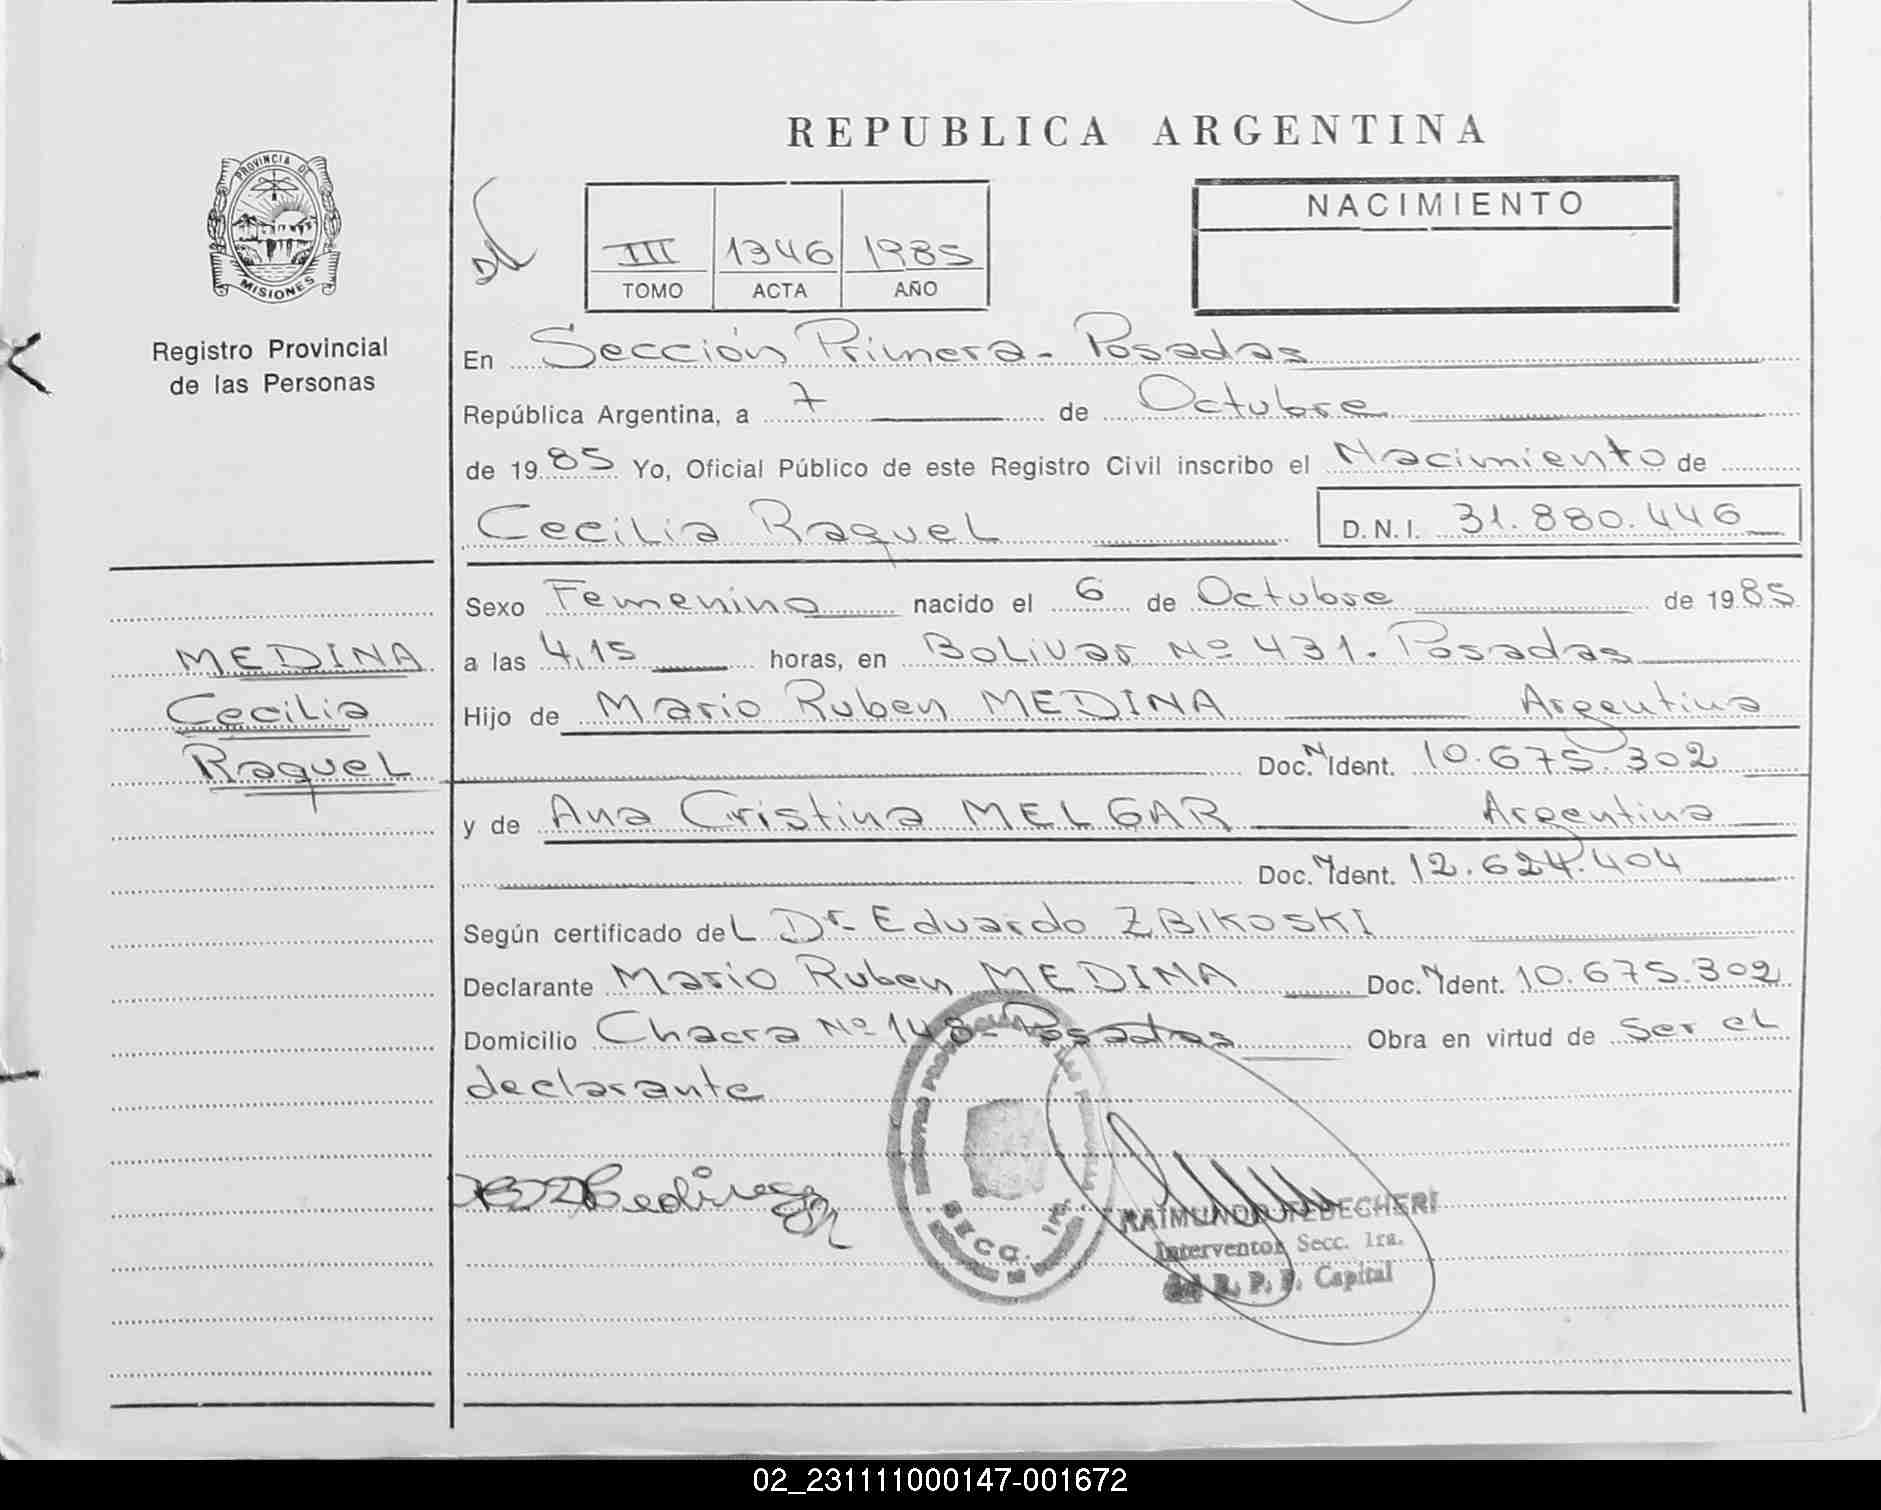 REPUBLICA ARGENTINA
PROVINCIA DE
MISIONES
Registro Provincial
de las Personas
III 1346 1985
TOMO ACTA AÑO
NACIMIENTO
En Sección Primera - Posadas
República Argentina, a 7 de Octubre
de 1985 Yo, Oficial Público de este Registro Civil inscribo el Nacimiento de
Cecilia Raquel D.N.I. 31.880.446
Sexo Femenino nacido el 6 de Octubre de 1985
MEDINA
Cecilia
Raquel
a las 4,15 horas, en Bolivar Nº 431. Posadas
Hijo de Mario Ruben MEDINA Argentina
Doc. N Ident. 10.675.302
y de Ana Cristina MELGAR Argentina
Doc. N Ident. 12.624.404
Según certificado del Dr. Eduardo ZBIKOSKI
Declarante Mario Ruben MEDINA Doc. N Ident. 10.675.302
Domicilio Chacra Nº 148 - Posadas Obra en virtud de ser el
declarante
SECC. 1ra.
RAIMUNDO
Interventor Secc. 1ra.
R. P. P. Capital
02_231111000147-001672